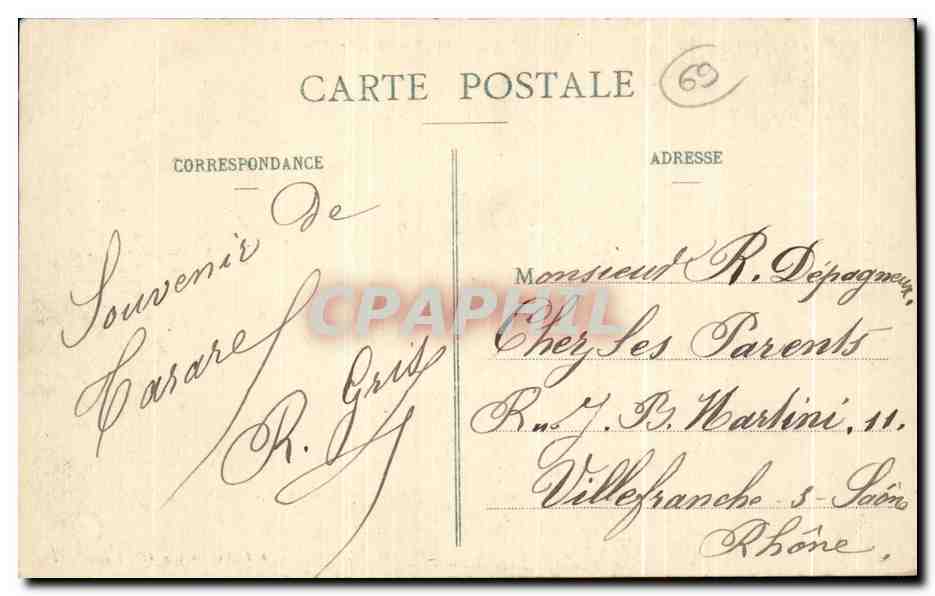 CARTE POSTALE
69
CORRESPONDANCE
ADRESSE
Souvenir de
Tarare
R. Gris
Monsieur R. Dépagneux.
Chez Ses Parents
Rue J. B. Martini. 11.
Villefranche-s-Saône
Rhône.
CPAPHIL